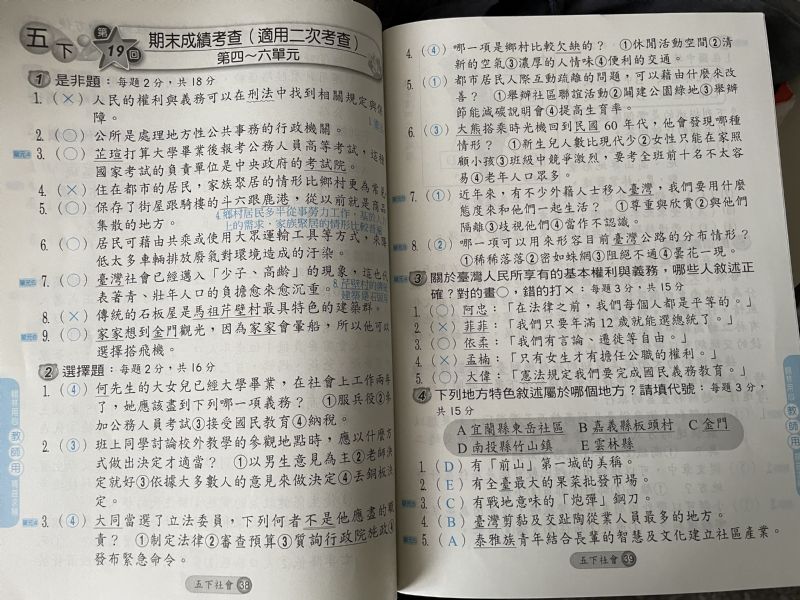 五下 第19回 期末成績考查(適用二次考查)
第四~六單元
1 是非題:每題2分,共18分
1.(×)人民的權利與義務可以在刑法中找到相關規定與保
障。
2.(○)公所是處理地方性公共事務的行政機關。
3.(○)芷瑄打算大學畢業後報考公務人員高等考試,這種
國家考試的負責單位是中央政府的考試院。
4.(×)住在都市的居民,家族聚居的情形比鄉村更為常見。
5.(○)保存了街屋跟騎樓的斗六跟鹿港,從以前就是商品
集散的地方。
4.鄉村居民多半從事勞力工作,基於人
上的需求,家族聚居的情形比較普遍
6.(○)居民可藉由共乘或使用大眾運輸工具等方式,來降
低太多車輛排放廢氣對環境造成的汙染。
7.(○)臺灣社會已經邁入「少子、高齡」的現象,這也代
表著青、壯年人口的負擔愈來愈沉重。
8.芹壁村的傳統
建築是石頭屋
8.(×)傳統的石板屋是馬祖芹壁村最具特色的建築群。
9.(○)家家想到金門觀光,因為家家會暈船,所以他可以
選擇搭飛機。
2 選擇題:每題2分,共16分
1.(④)何先生的大女兒已經大學畢業,在社會上工作兩年
了,她應該盡到下列哪一項義務? ①服兵役②參
加公務人員考試③接受國民教育④納稅。
2.(③)班上同學討論校外教學的參觀地點時,應以什麼方
式做出決定才適當? ①以男生意見為主②老師決
定就好③依據大多數人的意見來做決定④丟銅板決
定。
3.(④)大同當選了立法委員,下列何者不是他應盡的職
責? ①制定法律②審查預算③質詢行政院施政④
發布緊急命令。
五下社會 38
4.(④)哪一項是鄉村比較欠缺的? ①休閒活動空間②清
新的空氣③濃厚的人情味④便利的交通。
5.(①)都市居民人際互動疏離的問題,可以藉由什麼來改
善? ①舉辦社區聯誼活動②關建公園綠地③舉辦
節能減碳說明會④提高生育率。
6.(③)大熊搭乘時光機回到民國60年代,他會發現哪種
情形? ①新生兒人數比現代少②女性只能在家照
顧小孩③班級中競爭激烈,要考全班前十名不太容
易④老年人口眾多。
7.(①)近年來,有不少外籍人士移入臺灣,我們要用什麼
態度來和他們一起生活? ①尊重與欣賞②與他們
隔離③歧視他們④當作不認識。
8.(②)哪一項可以用來形容目前臺灣公路的分布情形?
①稀稀落落②密如蛛網③阻絕不通④曇花一現。
3 關於臺灣人民所享有的基本權利與義務,哪些人敘述正
確?對的畫○,錯的打×:每題3分,共15分
1.(○)阿忠:「在法律之前,我們每個人都是平等的。」
2.(×)菲菲:「我們只要年滿12歲就能選總統了。」
3.(○)依柔:「我們有言論、遷徙等自由。」
4.(×)孟楠:「只有女生才有擔任公職的權利。」
5.(○)大偉:「憲法規定我們要完成國民義務教育。」
4 下列地方特色敘述屬於哪個地方?請填代號:每題3分,
共15分
A宜蘭縣東岳社區 B嘉義縣板頭村 C金門
D南投縣竹山鎮 E雲林縣
1.(D)有「前山」第一城的美稱。
2.(E)有全臺最大的果菜批發市場。
3.(C)有戰地意味的「炮彈」鋼刀。
4.(B)臺灣剪黏及交趾陶從業人員最多的地方。
5.(A)泰雅族青年結合長輩的智慧及文化建立社區產業。
五下社會 39
教師用
教師用